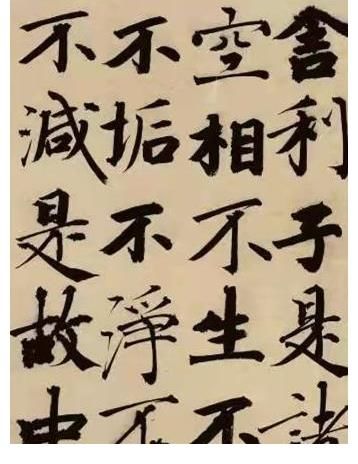 舍利子是諸
空相不生不
不垢不淨不
不減是故中